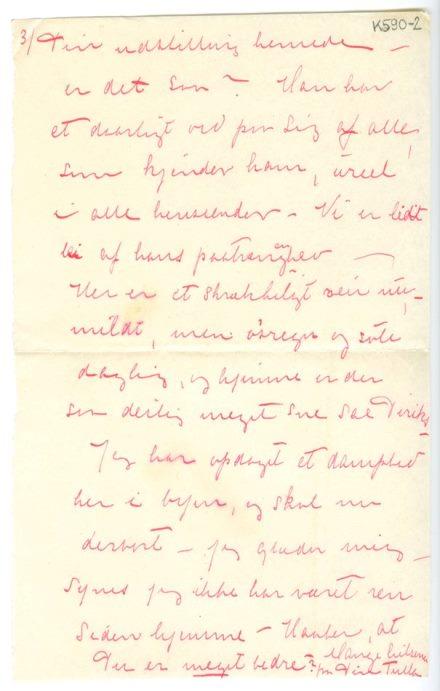 K590-2
3/ Din udstilling hernede –
er det san? Han har
et daarligt ord paa sig af alle,
som kjender ham, ureel
i alle henseender – Vi er lidt
lei af hans paatrængenhed –
Her er et skrækkeligt veir nu,–
mildt, men øsregn og søle
daglig, og hjemme er der
saa deilig meget sne sae
Jeg har opdaget et dampbad
her i byen, og skal nu
derbort – jeg glæder mig –
Synes jeg ikke har været ren
siden hjemme – Haaber, at
Du er meget bedre? Mange hilsener
fra Din Tulla